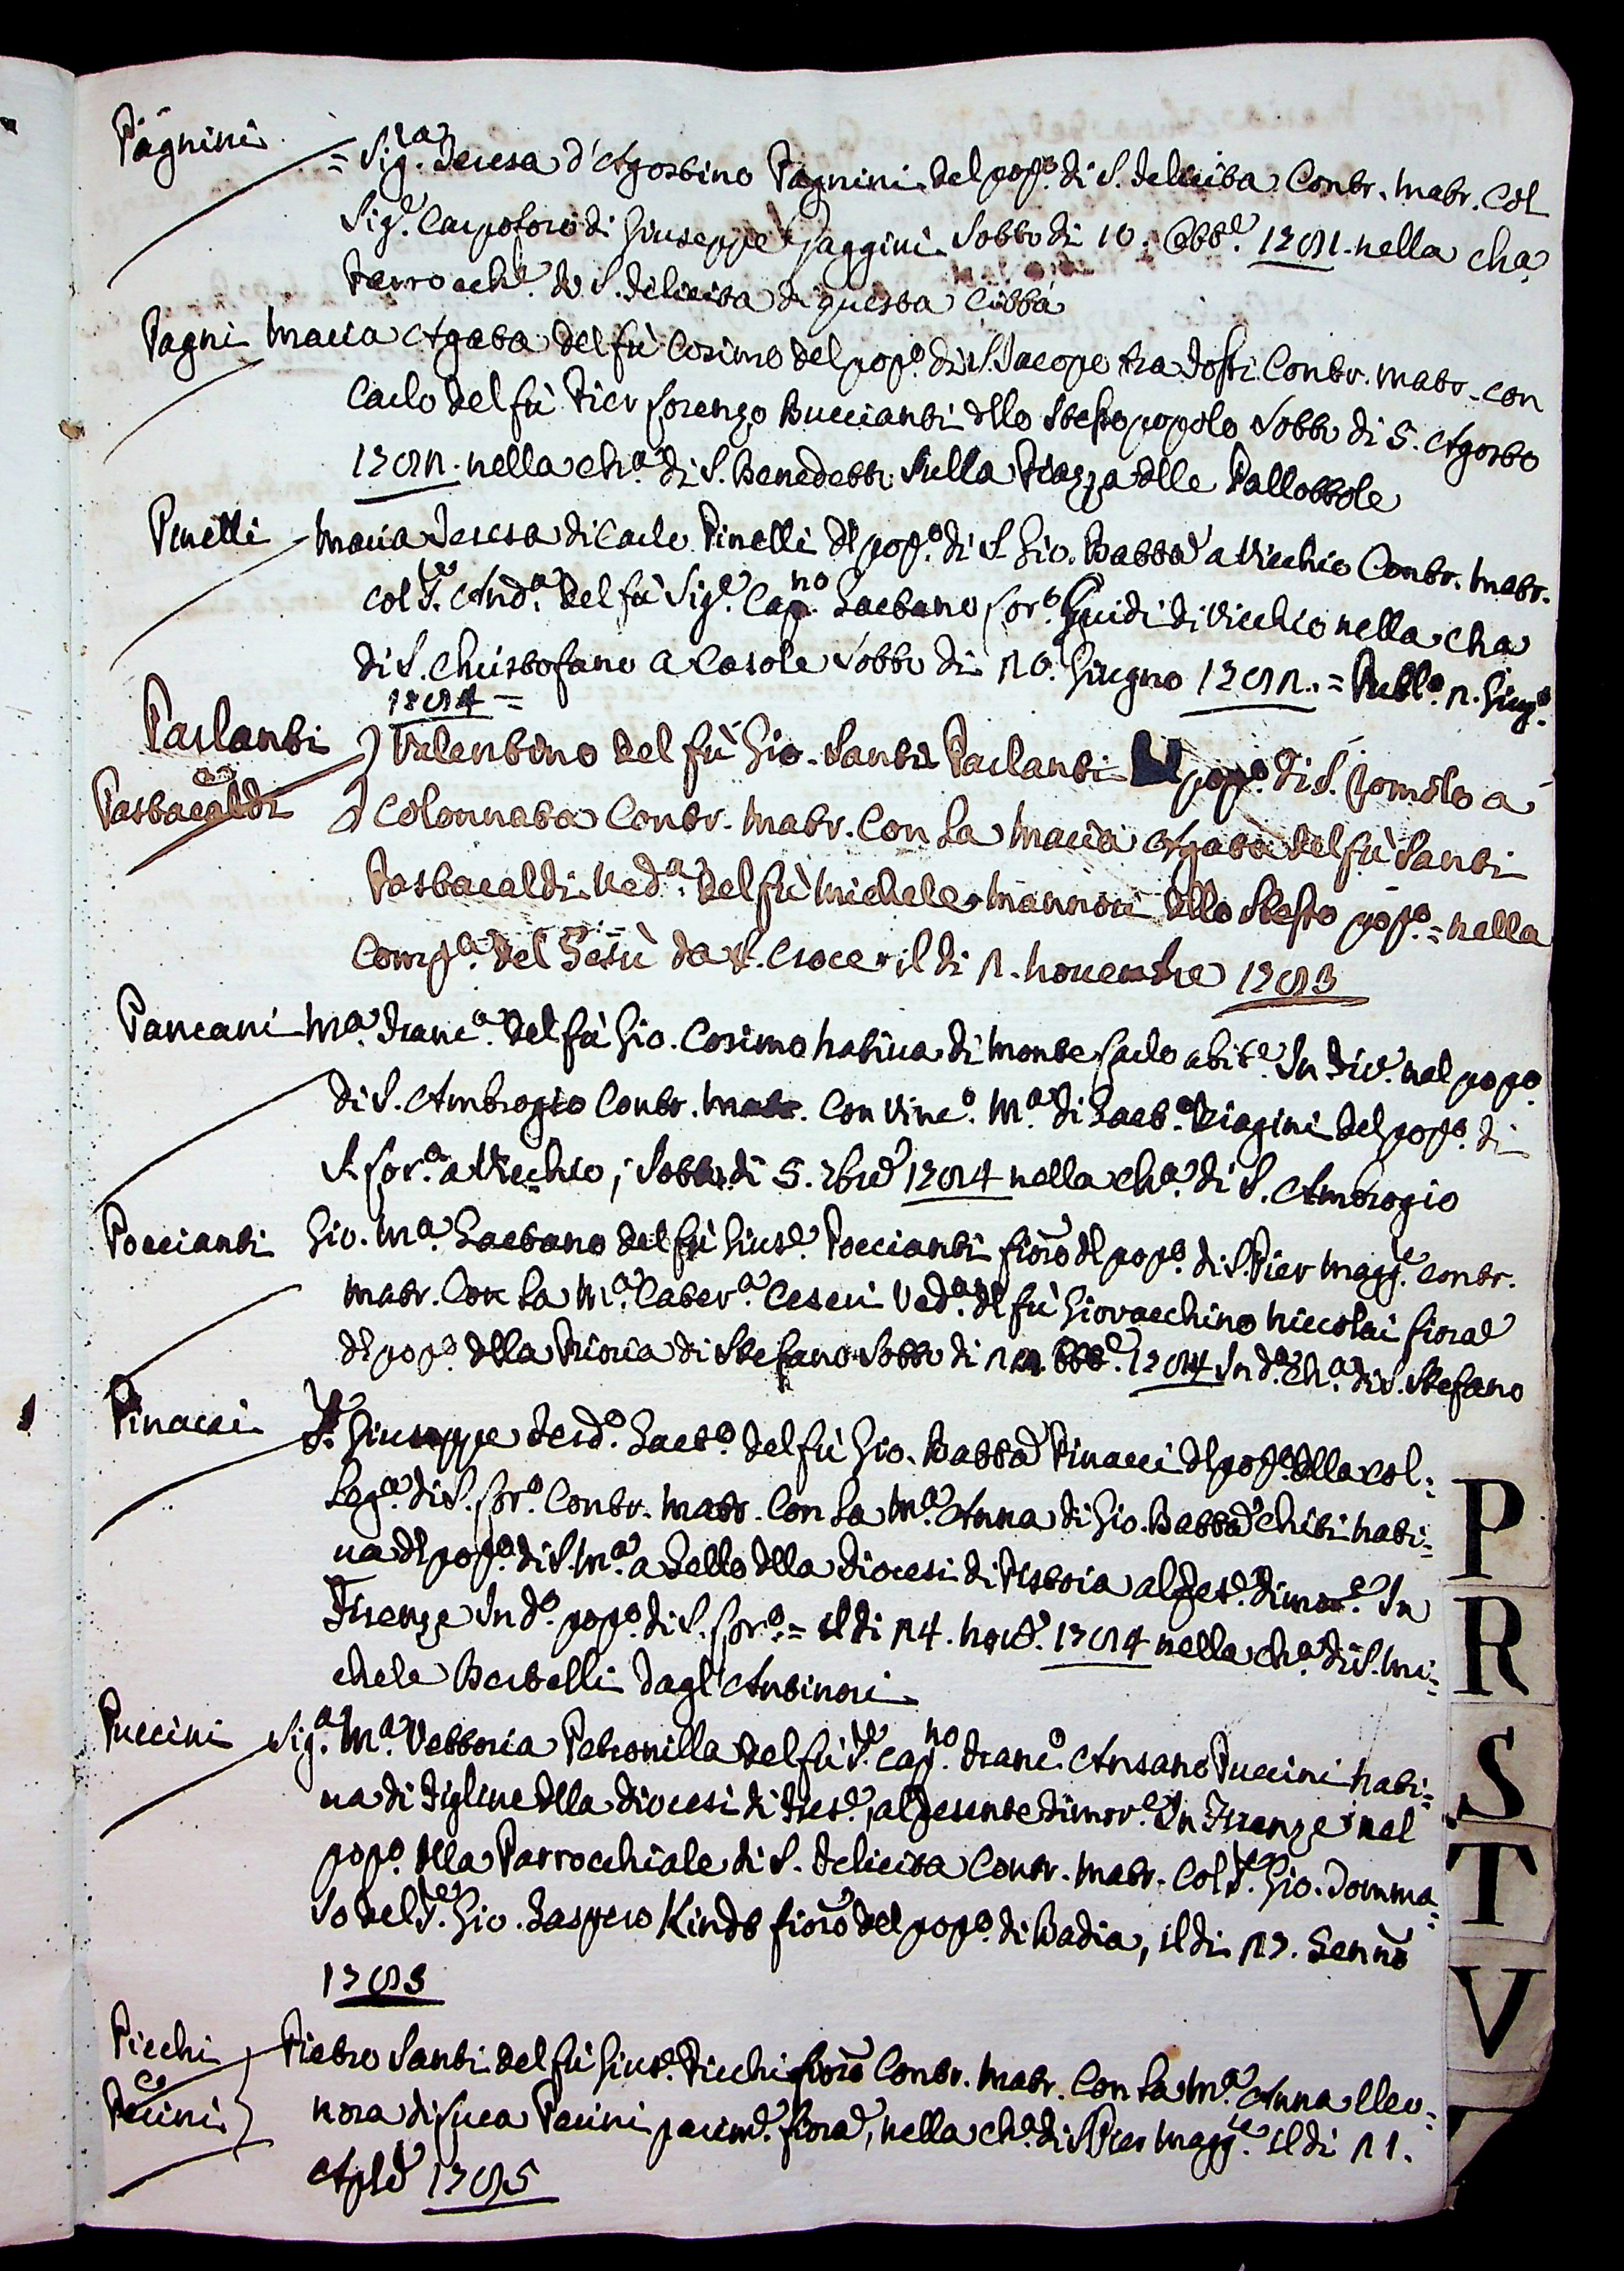 Pagnini = Sig.ra Teresa d'Agostino Pagnini del pop.o di S. Felicita Contr. matr. Col
Sig.e Carpoforo di Giuseppe Gaggini Sotto di 10. Ottb.e 1791. nella cha
Parrocch.e di S. Felicita di questa Città
Pagni Maria Agata del fù Cosimo del pop.o di S. Jacopo tra Fossi Contr. matr. con
Carlo del fù Pier Lorenzo Buccianti dllo Stesso popolo Sotto di 5. Agosto
1792. nella ch.a di S. Benedetto Sulla Piazza dlle Pallottole
Pinelli Maria Teresa di Carlo Pinelli dl pop.o di S. Gio. Batta a Vicchio Contr. matr.
col S.e And.a del fù Sig.e Cap.no Gaetano Lor.o Guidi di Vicchio nella cha
di S. Christofano a Casole Sotto di 20. Giugno 1792. = Pubb.o 2. Giug.o
1794 =
Parlanti Valentino del fù Gio. Santi Parlanti pop.o di S. Romolo a
Pastacaldi Colonnata Contr. Matr. Con La Maria Agata del fù Santi
Pastacaldi Ved.a del fù Michele Mannori dllo Stesso pop.o = nella
Comp.a del Gesù da S. Croce il di 2. Novembre 1793
Pancani M.a Franc.a del fù Gio. Cosimo nativa di Monte Carlo abit.e In Fir.e nel pop.o
di S. Ambrogio Contr. matr. Con Vinc.o M.a di Gaet.o Biagini del pop.o di
S. Lor.o a Vicchio, Sotto di 5. xbre 1794 nella ch.a di S. Ambrogio
Poccianti Gio. M.a Gaetano del fù Gius.e Poccianti fiorno dl pop.o di S. Pier Magg.e contr.
matr. Con La M.a Cater.a Ceseri Ved.a dl fù Giovacchino Niccolai fiorna
dl pop.o della Prioria di Stefano Sotto di Ottb.e 1794 In d.a Ch.a di S. Stefano
Pinacci S.e Giuseppe Ferd.o Gaet.o del fù Gio. Batta Pinacci dl pop.o dlla col:
Leg.a di S. Lor.o Contr. matr. Con La M.a Anna di Gio. Batta Chiti nati:
va dl pop.o di S. M.a a Lello dlla Diocesi di Pistoia al Pres.e dimor.e In
Firenze In d.o pop.o di S. Lor.o = il di 24. Nov.e 1794 nella ch.a di S. Mi:
chele Bertelli dagl'Antinori
Puccini Sig.a M.a Vettoria Petronilla del fù S.e Cap.no Franc.o Ansano Puccini nati:
va di Figline dlla diocesi di Fies.e, al presente dimor.e In Firenze nel
pop.o dlla Parrocchiale di S. Felicita Contr. matr. col S.e Gio. Tomma:
so del S.e Gio. Gaspero Kindt fiorno del pop.o di Badia, il di 27. Genno
1793
Picchi Pietro Santi del fù Gius.e Picchi fiorno Contr. matr. Con La M.a Anna Eleo:
Pacini nora di Luca Pacini parim.e fiorna, nella ch.a di S. Pier Magg.e il di 21.
Aple 1795
P
R
S
T
V